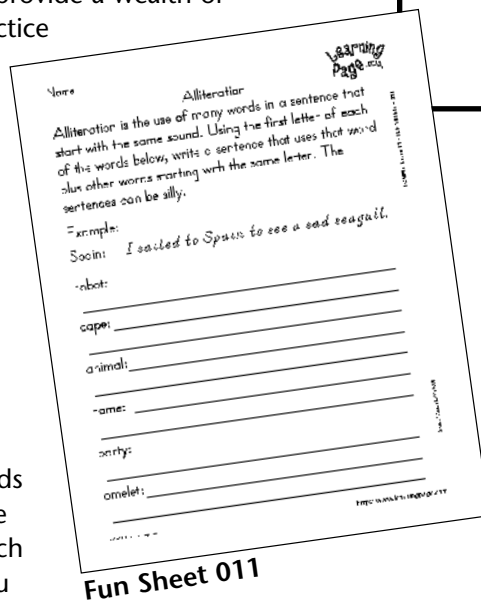 provide a wealth of
ctice
Learning
Page.com
Name
Alliteration
Alliteration is the use of many words in a sentence that
start with the same sound. Using the first letter of each
of the words below, write a sentence that uses that word
plus other words starting with the same letter. The
sentences can be silly.
Example:
Spain: I sailed to Spain to see a sad seagull.
cape:
animal:
party:
omelet:
ds
e
ch
u
Fun Sheet 011